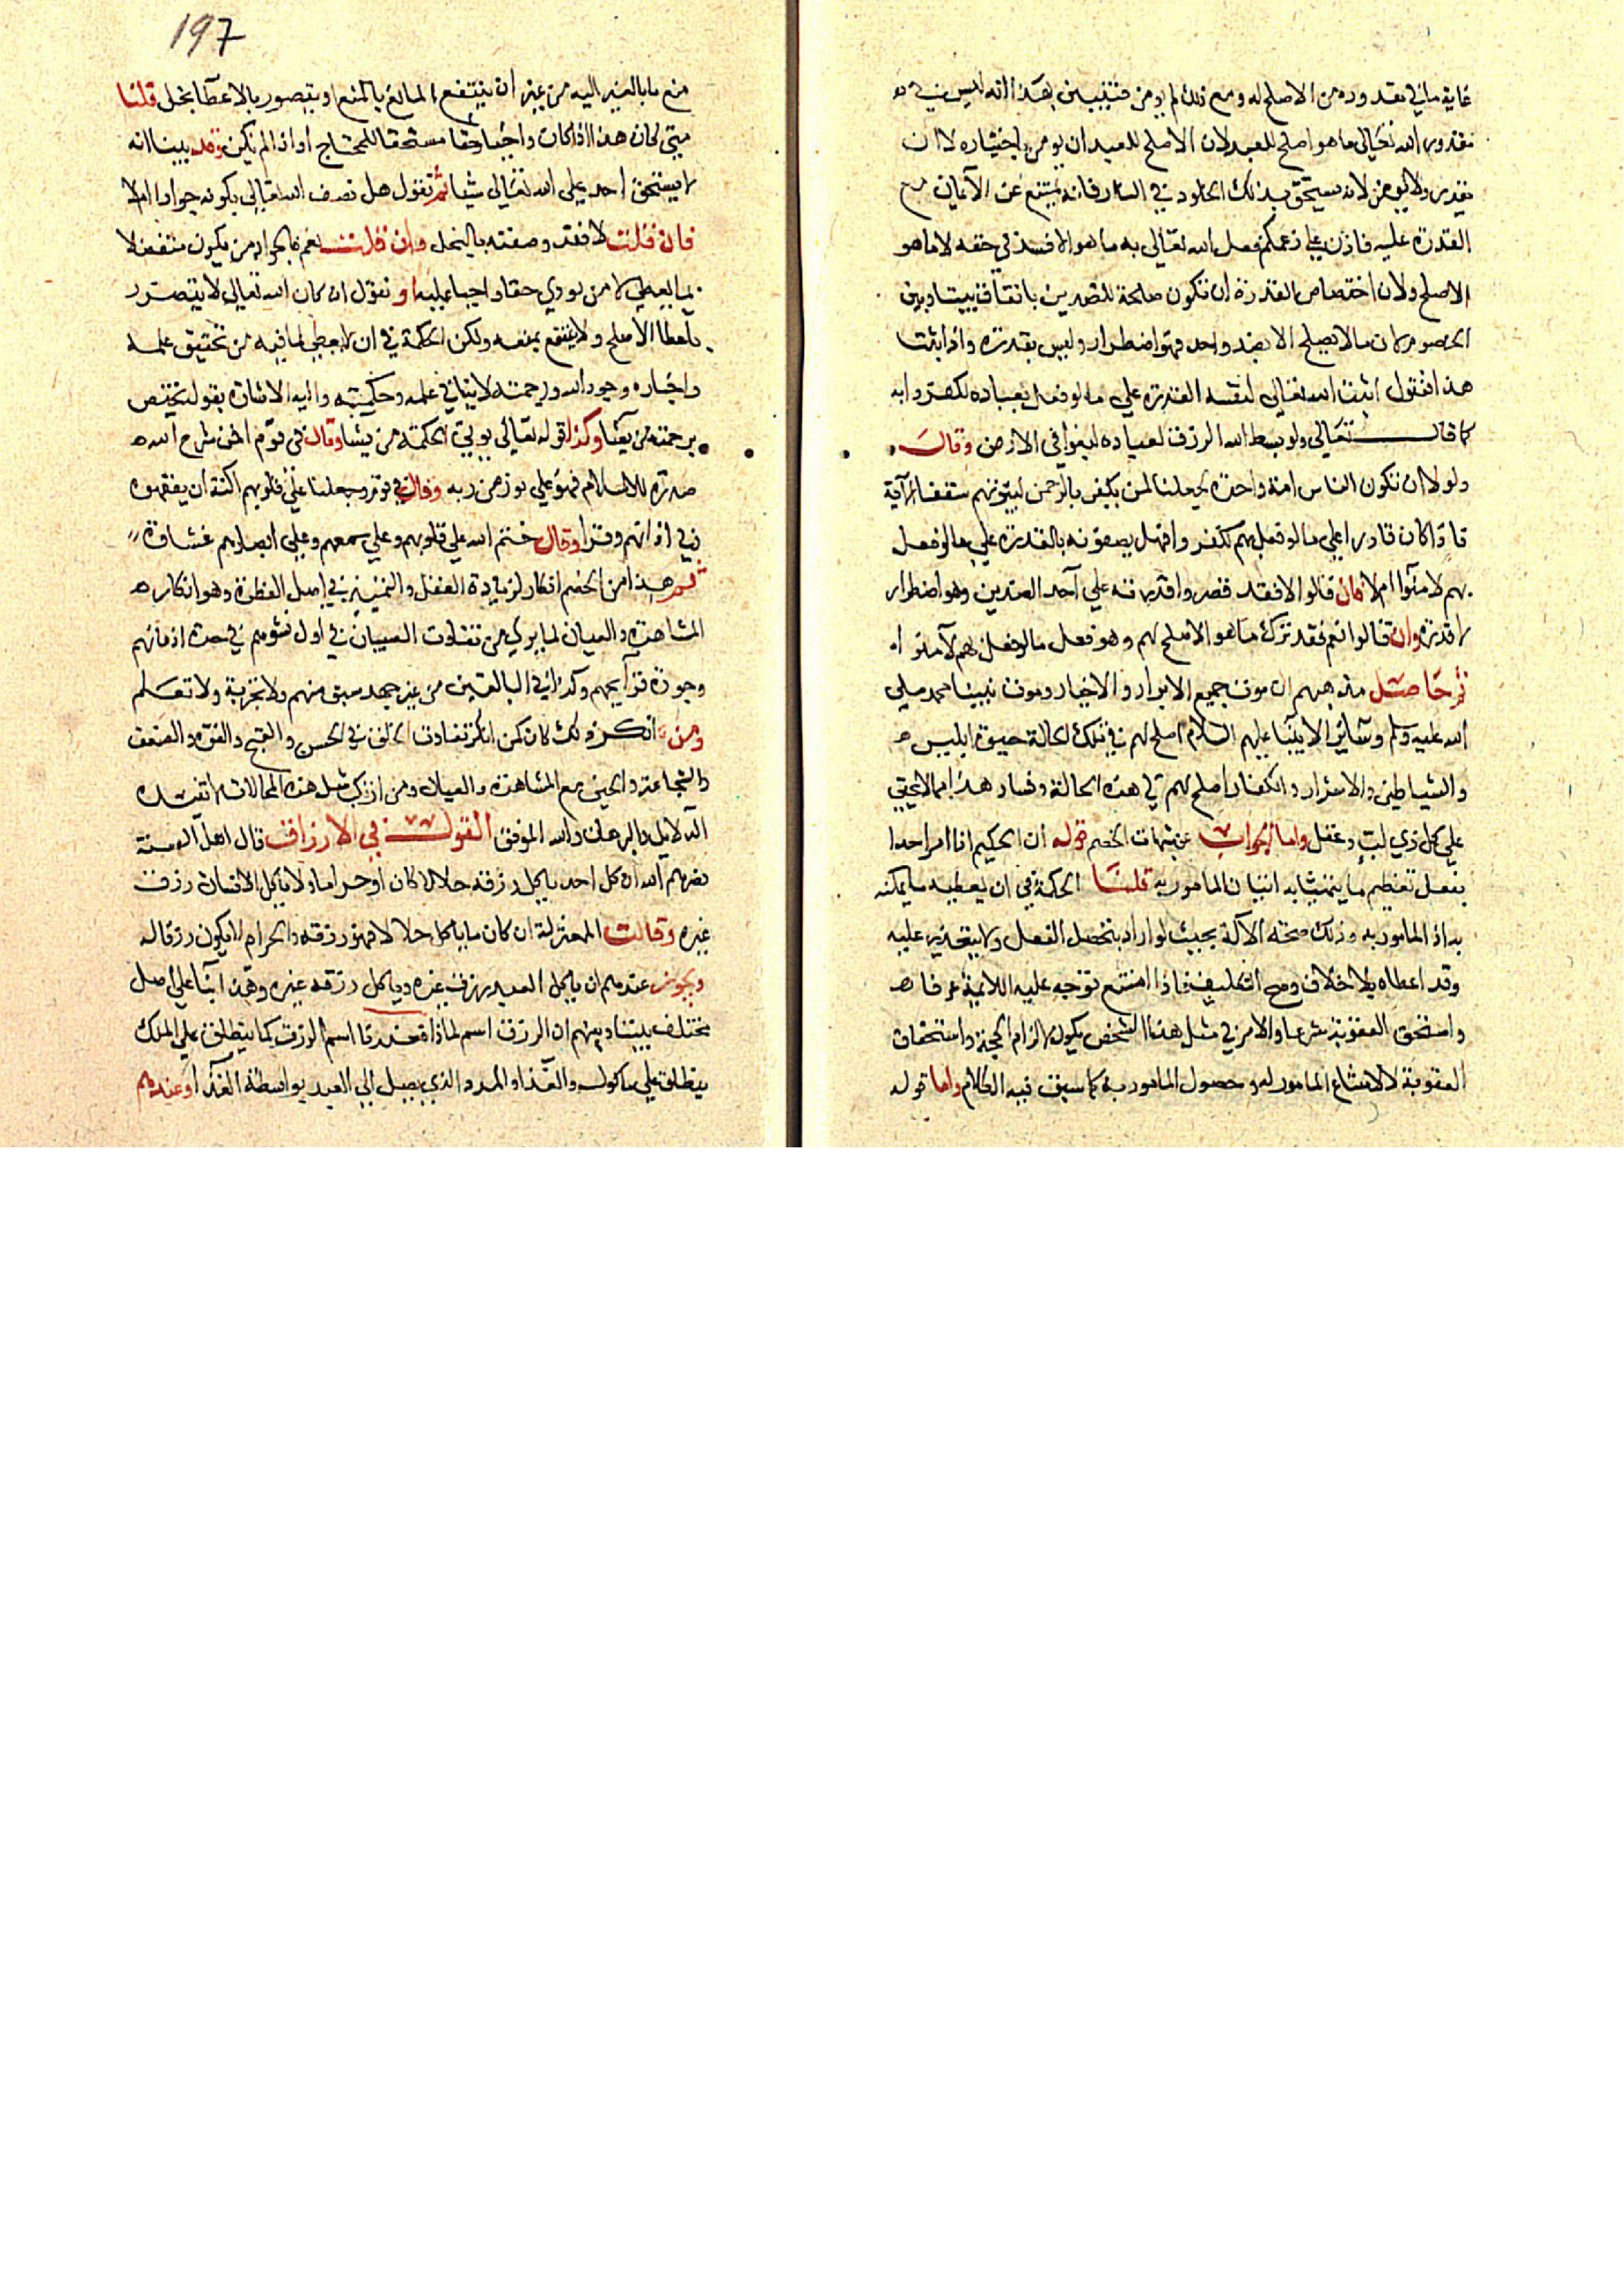 غاية ما في مقدوره من الاصلح له ومع ذلك لم يؤمن فتبين بهذا انه ليس في
مقدور الله تعالى ما هو اصلح للعبد لان الاصلح للعبد ان يومن باختياره لا ان
يقدر ولا يومن لانه يستحق بذلك الخلود في النار فانه يمتنع عن الايمان مع
القدرة عليه فاذن على زعمكم فعل الله تعالى به ما هو الافسد في حقه لا ما هو
الاصلح ولان اختصاص القدرة ان تكون صالحة للضدين باتفاق بيننا وبين
الخصوم لان ما لا يصلح الا بضد واحد فهو اضطرار وليس بقدرة واذا ثبت
هذا فنقول اثبت الله تعالى لنفسه القدرة على ما لو فعل بعباده لكفروا به
كما قال تعالى ولو بسط الله الرزق لعباده لبغوا في الارض وقال
ولولا ان تكون الناس امة واحدة لجعلنا لمن يكفر بالرحمن لبيوتهم سقفا الآية
فاذا كان قادرا على ما لو فعل بهم لكفروا فهل يصفونه بالقدرة على ما لو فعل
بهم لامنوا ام لا فان قالوا لا فقد قصروا قدرته على احد الضدين وهو اضطرار
لا قدرة وان قالوا نعم فقد ترك ما هو الاصلح لهم وهو فعل ما لو فعل بهم لآمنوا
ثم حاصل مذهبهم ان موت جميع الابرار والاخيار وموت نبينا محمد صلى
الله عليه وسلم وسائر الانبيا عليهم السلام اصلح لهم في تلك الحالة وحيوة ابليس
والشياطين والاشرار والكفار اصلح لهم في هذه الحالة وفساد هذا مما لا يخفى
على كل ذي لب وعقل واما الجواب عن شبهات الخصم قوله ان الحكيم اذا امر احدا
بفعل تعظيم ما يتمشا به اتيان المامور به قلنا الحكمة في ان يعطيه ما يمكنه
به اذا المامور به وذلك صحة الآلة بحيث لو اراد يتحصل الفعل ولا يتعذر عليه
وقد اعطاه بلا خلاف ومع التكليف فاذا امتنع توجه عليه اللائمة عرفا
واستحق العقوبة شرعا والامر في مثل هذا الشخص يكون لالزام الحجة واستحقاق
العقوبة لا لامتناع المامور له وحصول المامور به كما سبق فيه الكلام واما قوله
197
منع ما بالغير اليه من غير ان ينتفع المانع بالمنع او يتضرر بالاعطآ بخل قلنا
متى كان هذا اذا كان واجبا وحقا مستحقا للمحتاج او اذا لم يكن وقد بينا انه
لا يستحق احد على الله تعالى شيا ثم نقول هل نصف الله تعالى بكونه جوادا ام لا
فان قلت لا فقد وصفته بالبخل وان قلت نعم فالجواد من يكون متفضلا
بما يعطي لا من يودي حقا واجبا عليه او نقول ان كان الله تعالى لا يتضرر
باعطا الاصلح ولا ينتفع بمنعه ولكن الحكمة في ان لا يعطى لما فيه من تحقيق علمه
واخباره وجود الله ورحمته لا ينافي علمه وحكمته واليه الاشارة بقوله يختص
برحمته من يشا وكذا قوله تعالى يوتي الحكمة من يشا وقال في قوم افمن شرح الله
صدره للاسلام فهو على نور من ربه وقال في قوم وجعلنا على قلوبهم اكنة ان يفقهوه
وفي اذانهم وقرا وقال ختم الله على قلوبهم وعلى سمعهم وعلى ابصارهم غشاوة
ثم هذا من الخصم انكار لزيادة العقل والتمييز في اصل الفطرة وهو انكار
المشاهدة والعيان لما يرى من تفاوت الصبيان في اول نشوهم في حدة اذهانهم
وجودة قرايحهم وكذا في البالغين من غير جهد سبق منهم ولا تجربة ولا تعلم
ومن انكر ذلك كان كمن انكر تفاوت الخلق في الحسن والقبح والقوة والضعف
والشجاعة والجبن مع المشاهدة والعيان ومن ارتكب مثل هذه المحالات لا تفيده
الدلايل والبرهان والله الموفق القول في الارزاق قال اهل السنة
نصرهم الله ان كل احد ياكل رزقه حلالا كان او حراما ولا ياكل الانسان رزق
غيره وقالت المعتزلة ان كان ما ياكل حلالا فهو رزقه والحرام لا يكون رزقا له
ويجوز عندهم ان ياكل العبد رزق غيره وياكل رزقه غيره وهذا بنآ على اصل
مختلف بيننا وبينهم ان الرزق اسم لماذا فعندنا اسم الرزق كما ينطلق على الملك
ينطلق على ماكول والغذا والمدد الذي يصل الى العبد بواسطة الغذآ وعندهم